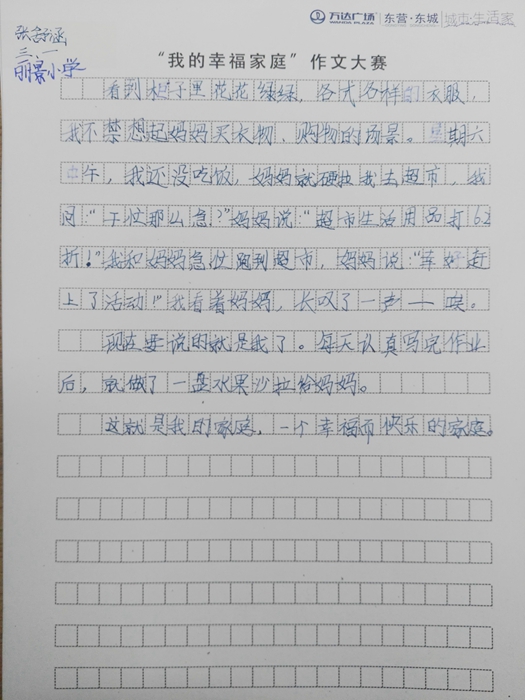 万达广场 东营·东城 城市·生活家
WANDA PLAZA
张言涵
三、一
丽景小学
“我的幸福家庭”作文大赛
看到柜子里花花绿绿，各式各样的衣服，
我不禁想起妈妈买衣物、购物的场景。星期六
中午，我还没吃饭，妈妈就硬拉我去超市，我
问：“干忙那么急？”妈妈说：“超市生活用品打62
折！”我和妈妈急忙跑到超市，妈妈说：“幸好赶
上了活动！”我看着妈妈，长叹了一声——唉。
现在要说的就是我了。每天认真写完作业
后，就做了一盘水果沙拉给妈妈。
这就是我的家庭，一个幸福而快乐的家庭。